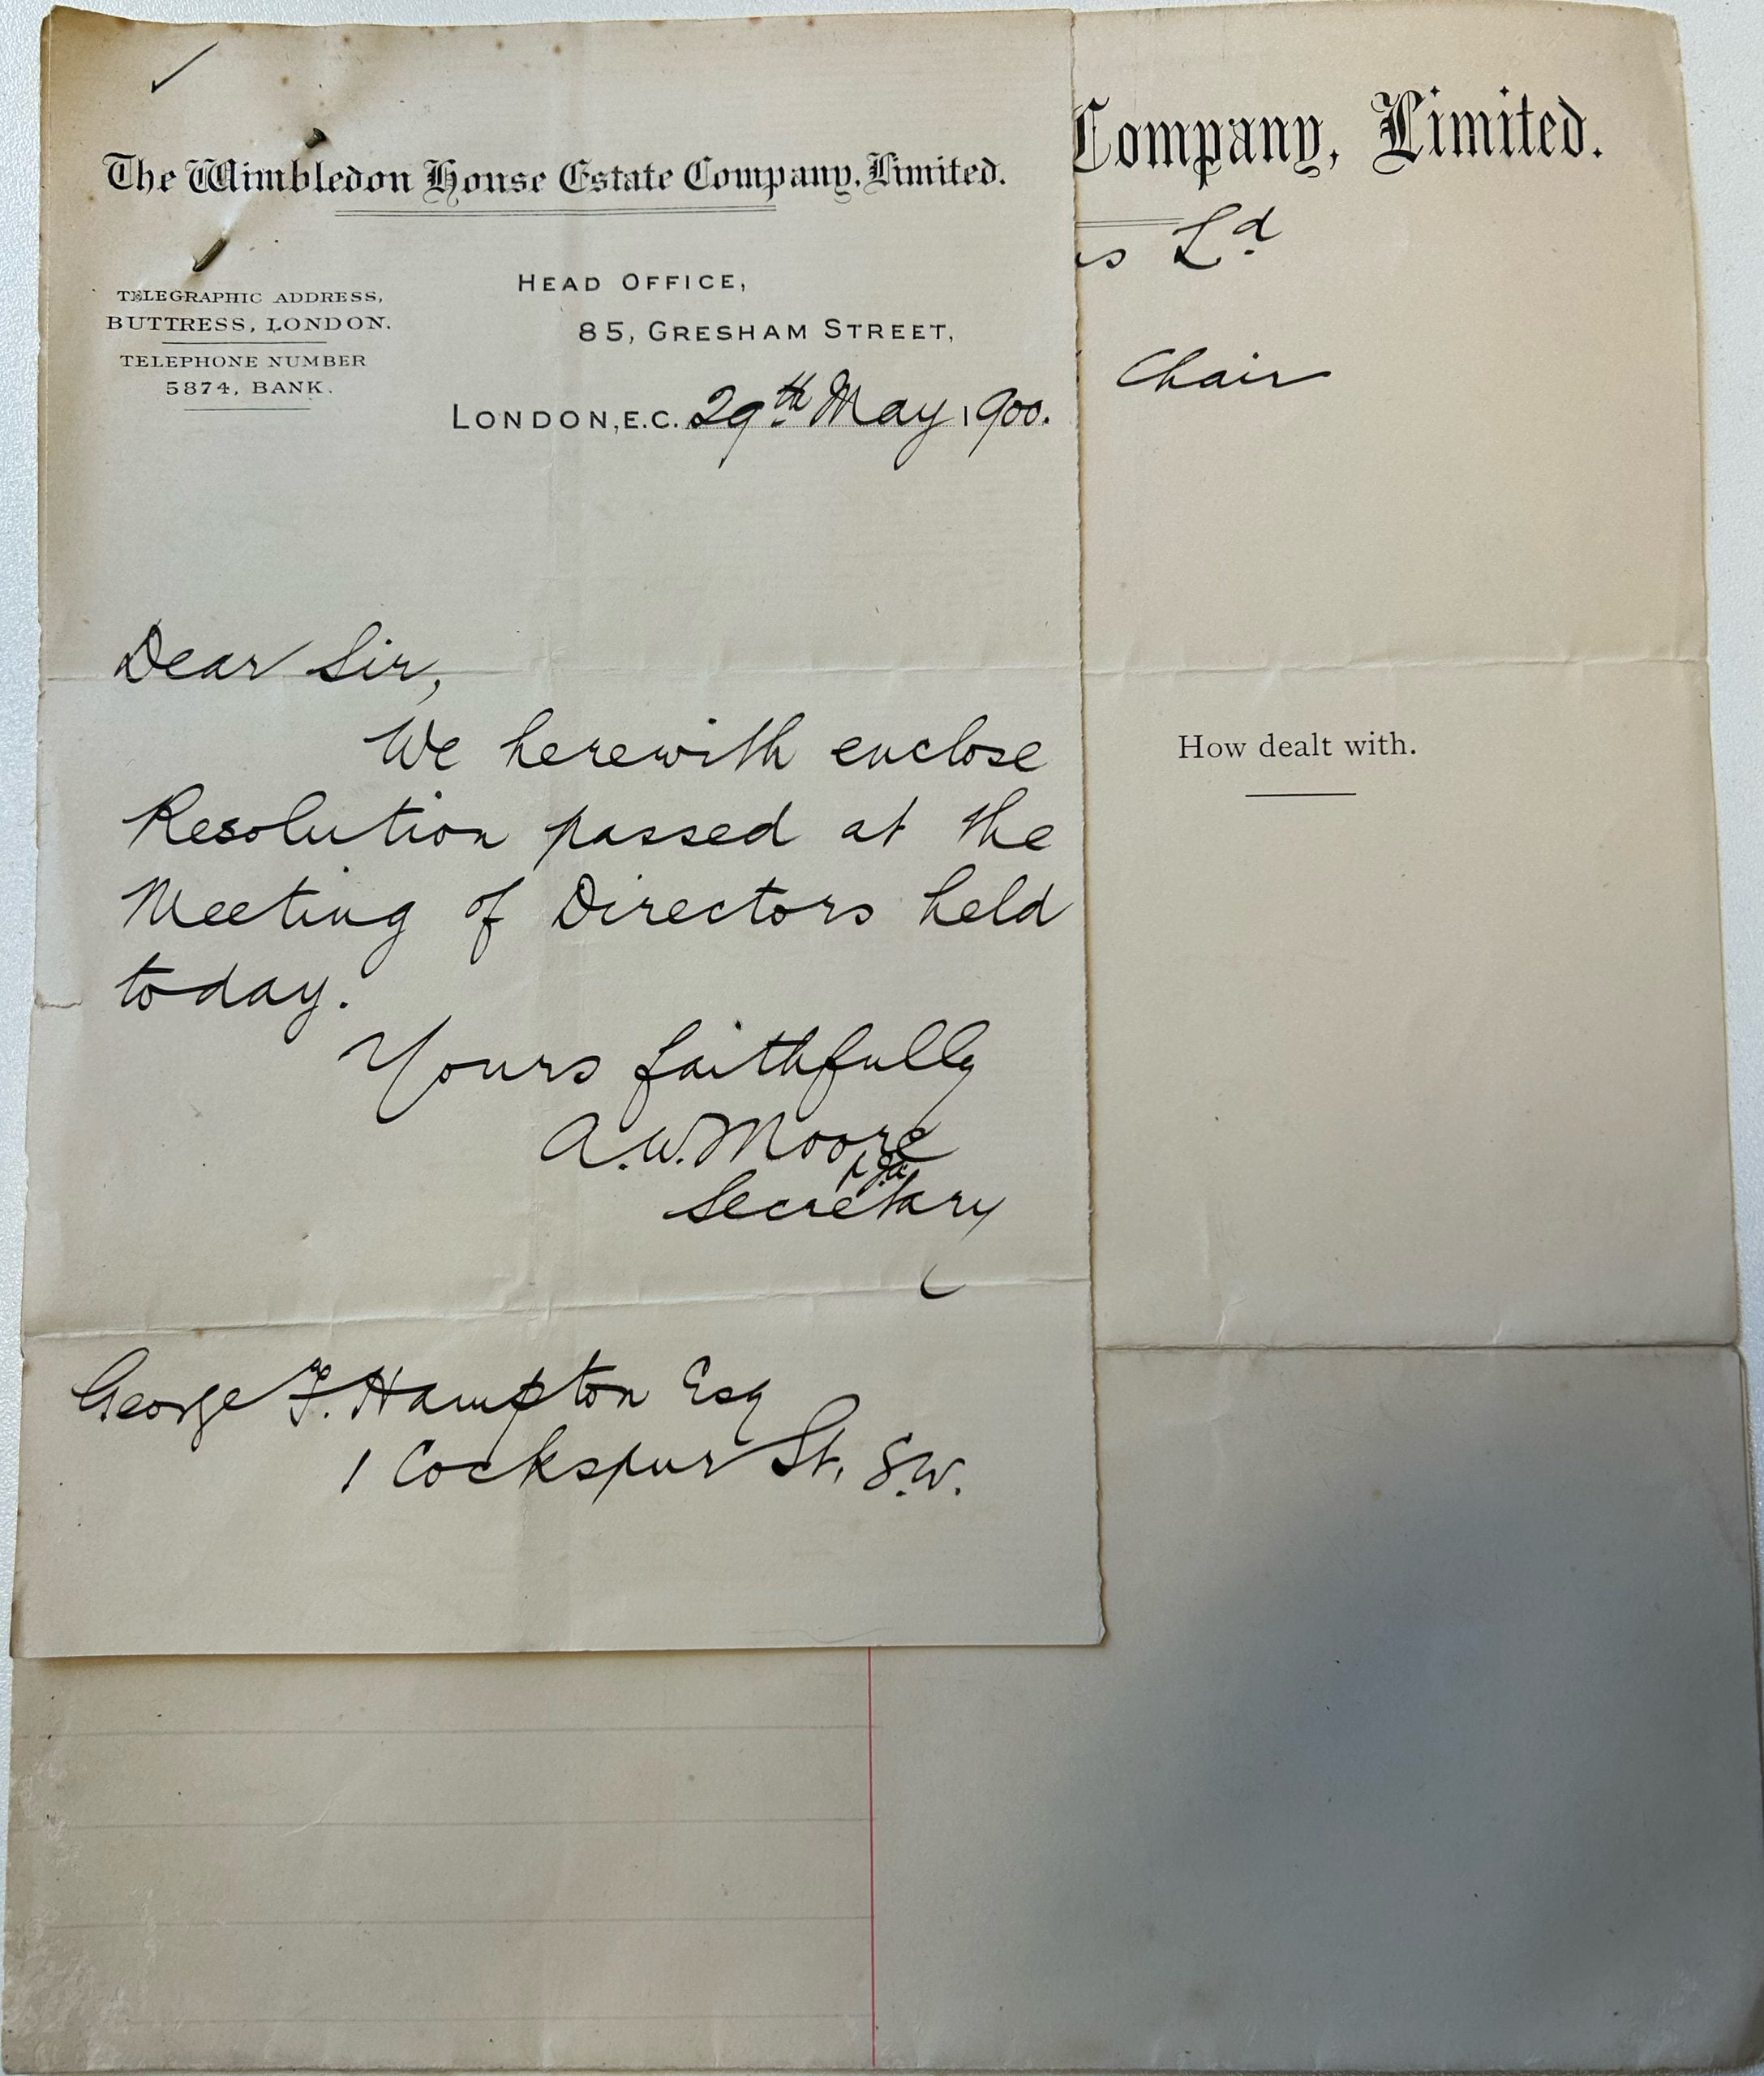 The Wimbledon House Estate Company, Limited.
TELEGRAPHIC ADDRESS,
BUTTRESS, LONDON.
TELEPHONE NUMBER
5874, BANK.
HEAD OFFICE,
85, GRESHAM STREET,
LONDON, E.C. 29th May 1900.
Dear Sir,
We herewith enclose
Resolution passed at the
Meeting of Directors held
today.
Yours faithfully
A.W. Moore
Secretary
George F. Hampton Esq
1 Cockspur St, S.W.
Company, Limited.
Ld
Chair
How dealt with.